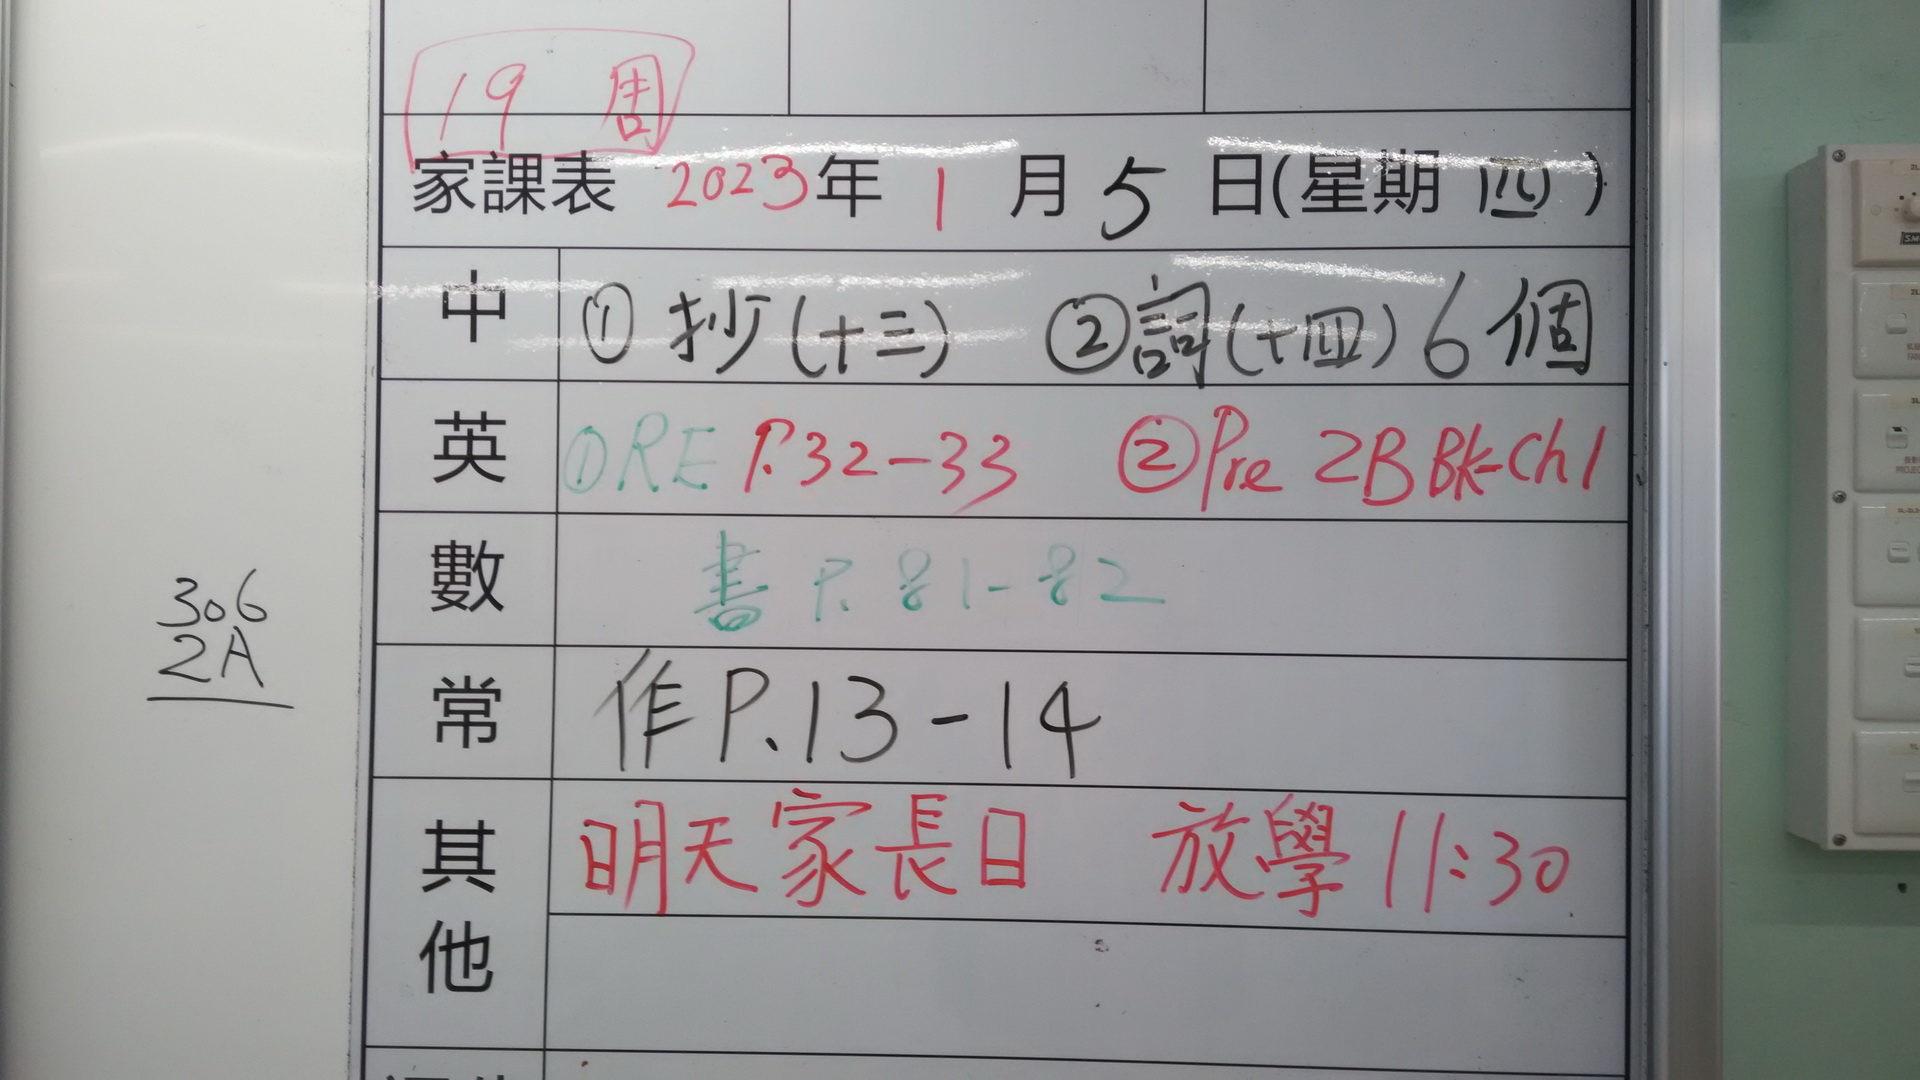 19 周
家課表 2023年 1 月 5 日(星期 四)
中 ① 抄(十三) ② 詞(十四) 6 個
英 ① RE P.32-33 ② Pre 2B Bk-Ch1
數 書 P. 81-82
常 作 P.13-14
其他 明天家長日 放學 11:30
306
2A